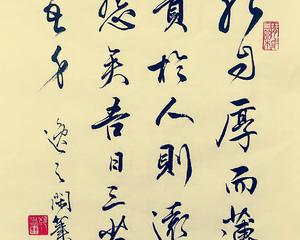 躬自厚而薄
責於人則遠
怨矣吾日三省
吾身
逸之